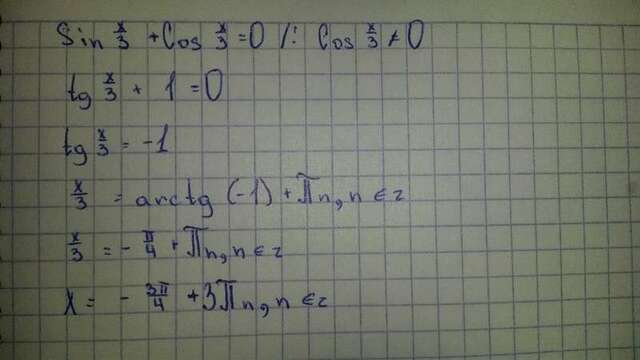 Sin x/3 + Cos x/3 = 0 /: Cos x/3 ≠ 0
tg x/3 + 1 = 0
tg x/3 = -1
x/3 = arctg (-1) + πn, n ∈ z
x/3 = - π/4 + πn, n ∈ z
x = - 3π/4 + 3πn, n ∈ z